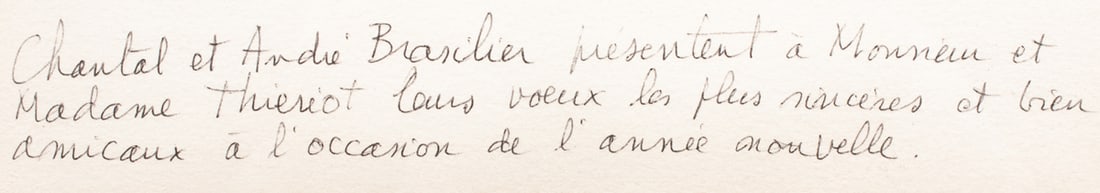 Chantal et André Brasilier présentent à Monsieur et
Madame Thieriot leurs voeux les plus sincères et bien
amicaux à l'occasion de l'année nouvelle.